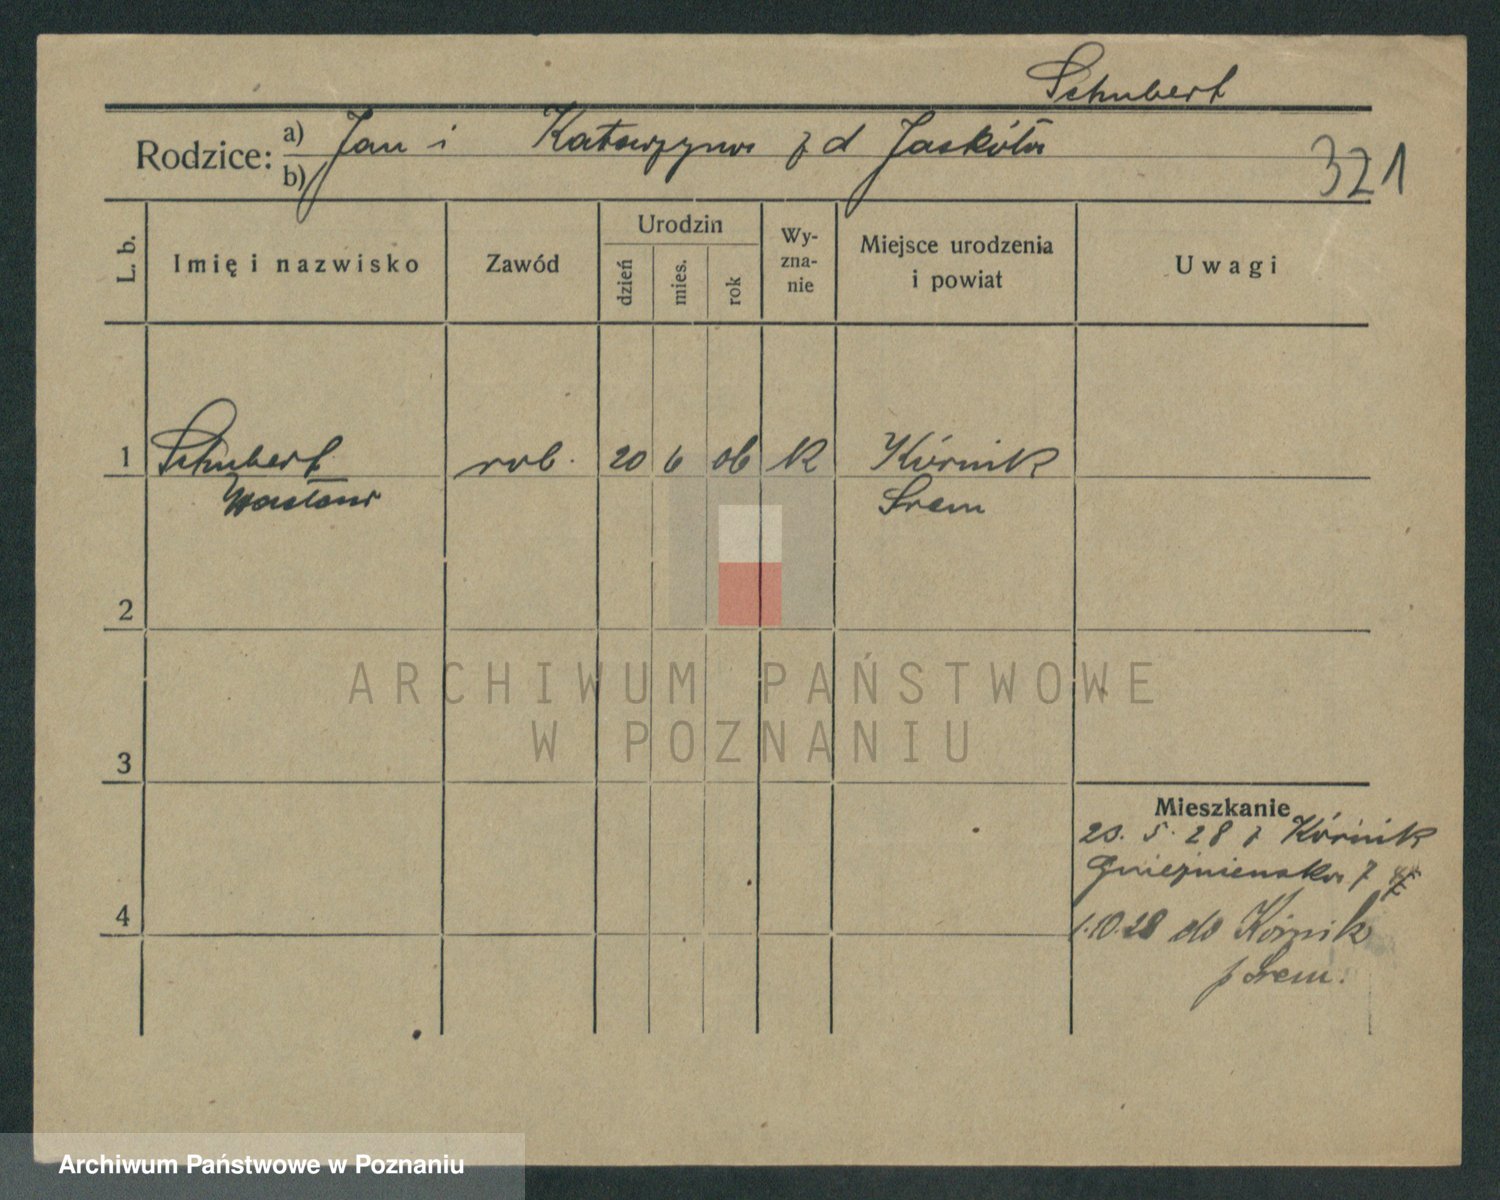 Schubert
Rodzice: a) Jan i Katarzyna z d Jaskóła
b)
321
L. b.
Imię i nazwisko
Zawód
Urodzin
dzień
mies.
rok
Wy-
zna-
nie
Miejsce urodzenia
i powiat
Uwagi
1 Schubert rob. 20 6 06 K Kórnik
Wacław Srem
2
ARCHIWUM PAŃSTWOWE
W POZNANIU
3
Mieszkanie
20. 5. 28 z Kórnik
Gnieźnienska 7
4
1.10.28 do Kórnik
p Srem.
Archiwum Państwowe w Poznaniu